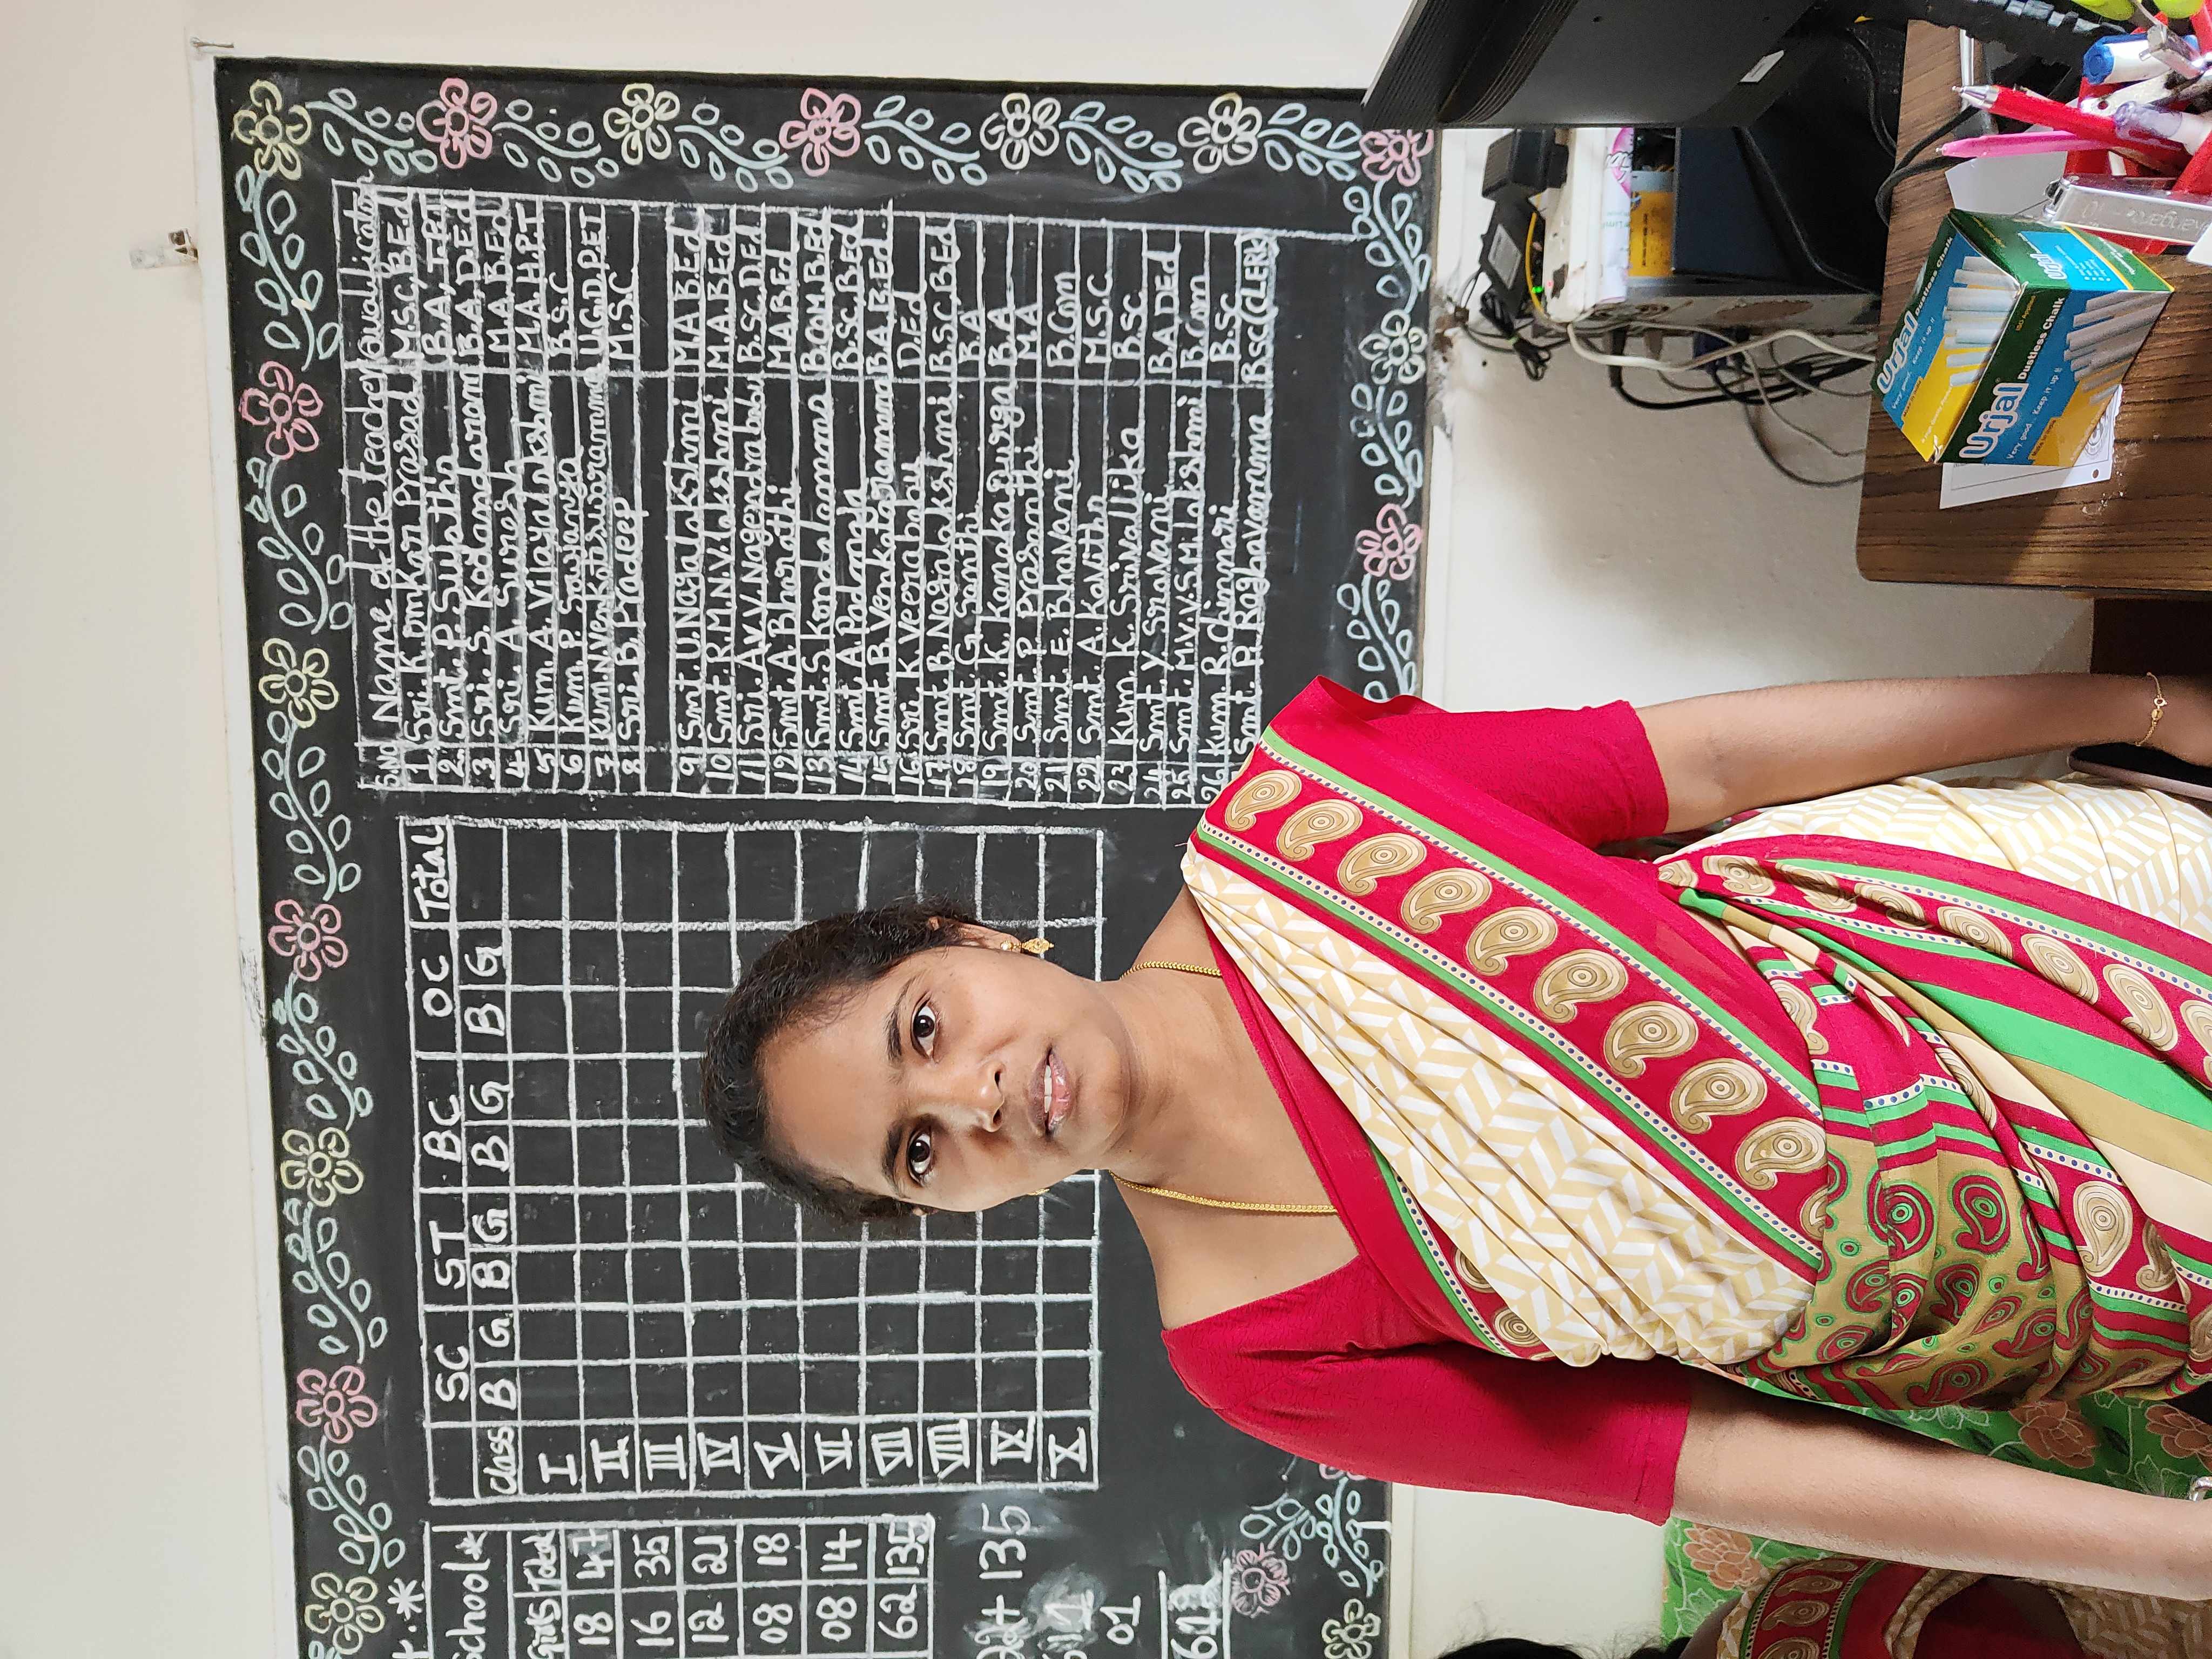 School*
Girls Total
18 47
16 35
12 21
08 18
08 14
62 135
+ 135
01
SC ST BC OC Total
Class B G B G B G B G
I
II
III
IV
V
VI
VII
VIII
IX
X
S.No Name of the teacher Qualification
1 Sri. K. Omkar Prasad M.S.C, B.Ed
2 Smt. P. Sujatha B.A, T.PT
3 Sri. S. Kodandaram B.A, D.Ed
4 Sri. A. Suresh M.A B.Ed
5 Kum. A. Vijayalakshmi M.A. H.P.T
6 Kum. P. Sowjanya B.S.C
7 Kum. N. Venkateswaramma U.G.D.P.ET
8 Sri. B. Pradeep M.S.C
9 Smt. U. Nagalakshmi M.A B.Ed
10 Smt. R.M.N.V. lakshmi M.A. B.Ed
11 Sri. A.V.V. Nagendrababu B.Sc. D.Ed
12 Smt. A. Bharathi M.A B.Ed
13 Smt. S. Kondalamma B.Com. B.Ed
14 Smt. A. Padmaja B.Sc, B.Ed
15 Smt. B. Venkataramana B.A B.Ed
16 Sri. K. Veerababu D.Ed
17 Smt. B. Nagalakshmi B.S.C, B.Ed
18 Smt. G. Santhi B.A
19 Smt. K. Kanaka Durga B.A
20 Smt. P. Prasanthi MA
21 Smt. E. Bhavani B.Com
22 Smt. A. Kavitha M.S.C.
23 Kum. K. Srivallika B.Sc
24 Smt. Y. Sravani B.A DEd
25 Smt. M.V.V.S.M. lakshmi B.Com
26 Kum. R. Chinnari B.Sc
Smt. P. Raghavamma Bsc (CLERK)
Urjal
Dustless Chalk
Very good Keep it up !!
Urjal
Dustless Chalk
Very good Keep it up !!
kangaro